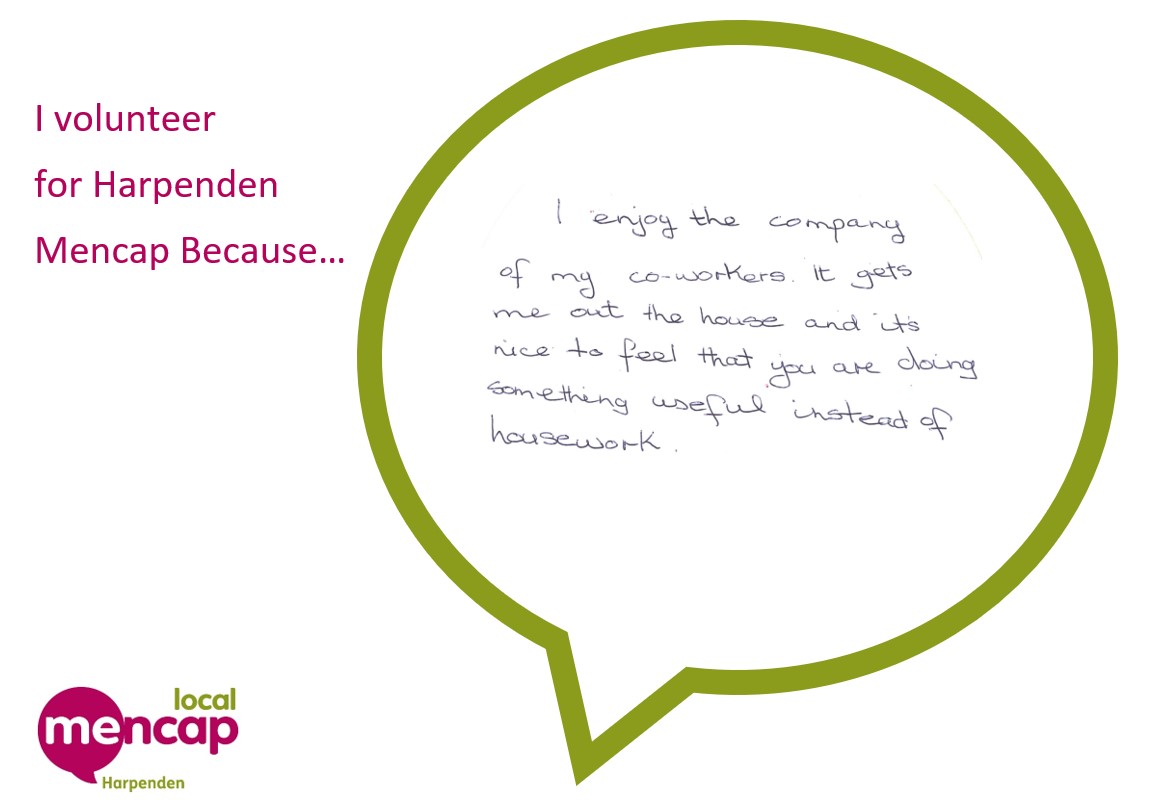 I volunteer
for Harpenden
Mencap Because...
I enjoy the company
of my co-workers. It gets
me out the house and it's
nice to feel that you are doing
something useful instead of
housework.
local
mencap
Harpenden